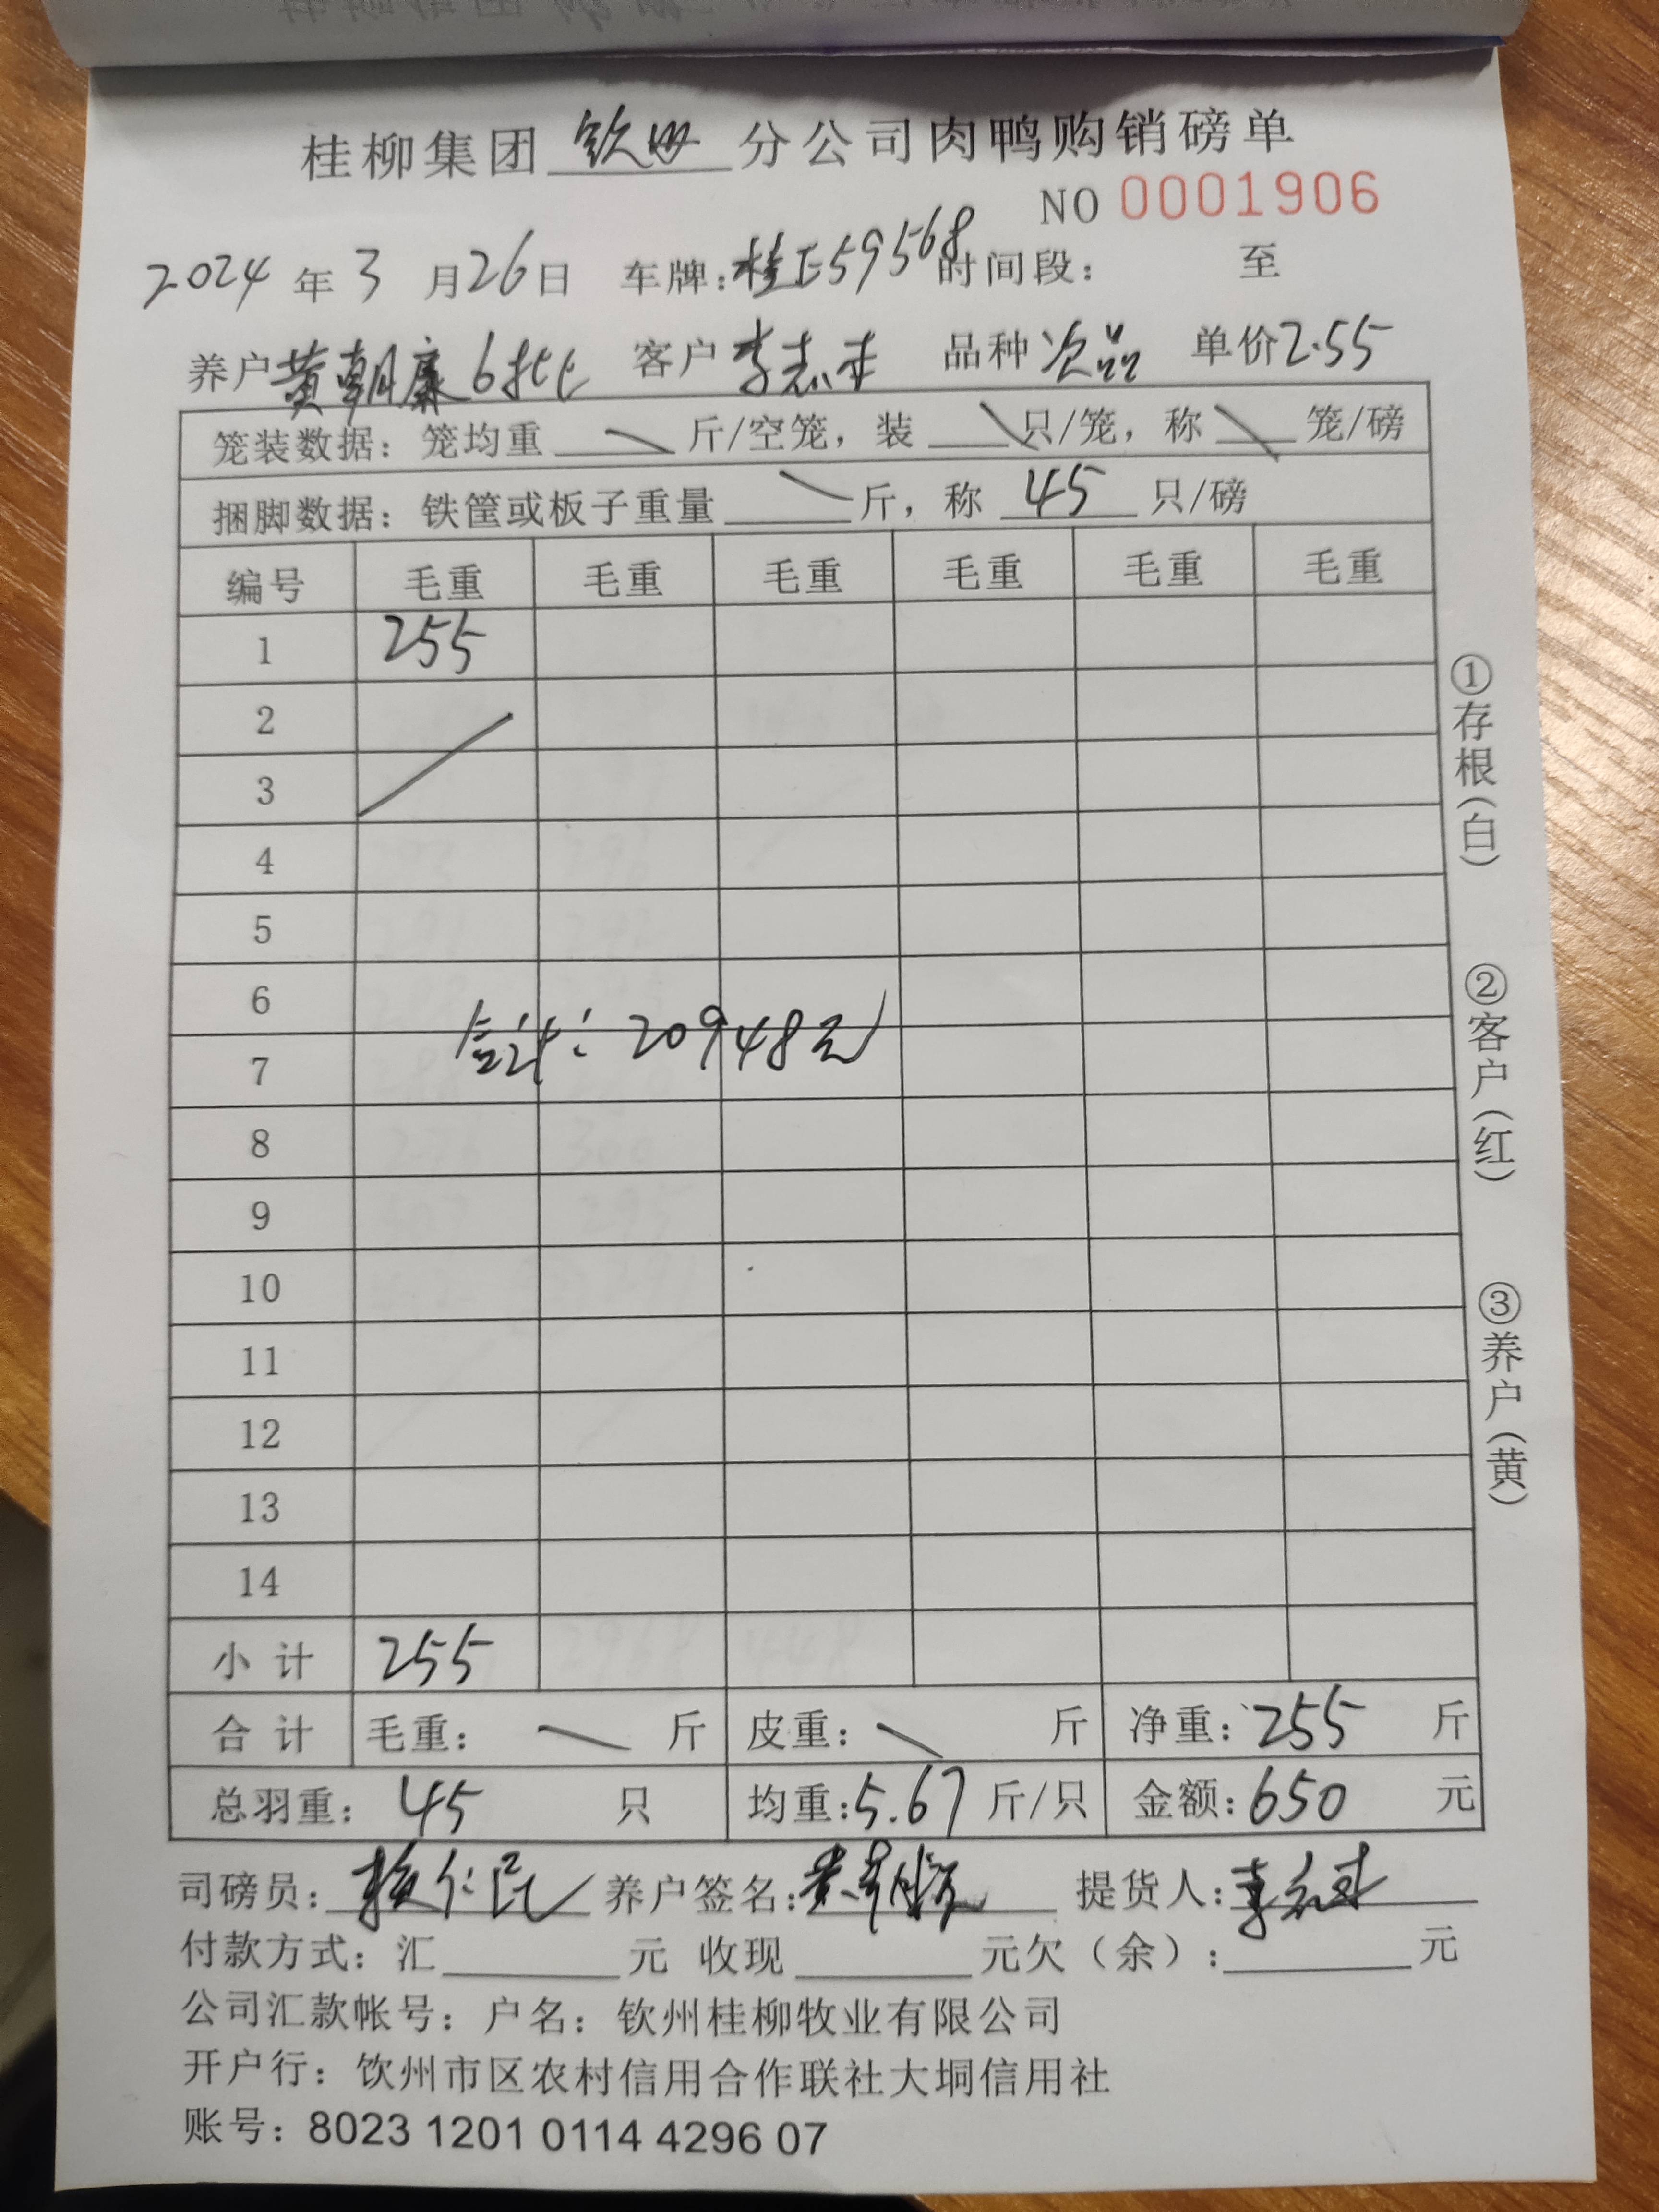 桂柳集团 钦州 分公司肉鸭购销磅单
NO 0001906
2024 年 3 月 26 日 车牌: 桂E59568 时间段: 至
养户 黄朝廉 6批 客户 李志丰 品种 次品 单价 2.55
笼装数据: 笼均重 斤/空笼, 装 只/笼, 称 笼/磅
捆脚数据: 铁筐或板子重量 斤, 称 45 只/磅
编号 毛重 毛重 毛重 毛重 毛重 毛重
1 255
2
3
4
5
6
合计: 20948元
7
8
9
10
11
12
13
14
小计 255
合计 毛重: 斤 皮重: 斤 净重: 255 斤
总羽重: 45 只 均重: 5.67 斤/只 金额: 650 元
司磅员: 养户签名: 提货人:
付款方式: 汇 元 收现 元欠(余): 元
公司汇款帐号: 户名: 钦州桂柳牧业有限公司
开户行: 钦州市区农村信用合作联社大垌信用社
账号: 8023 1201 0114 4296 07
①存根(白) ②客户(红) ③养户(黄)